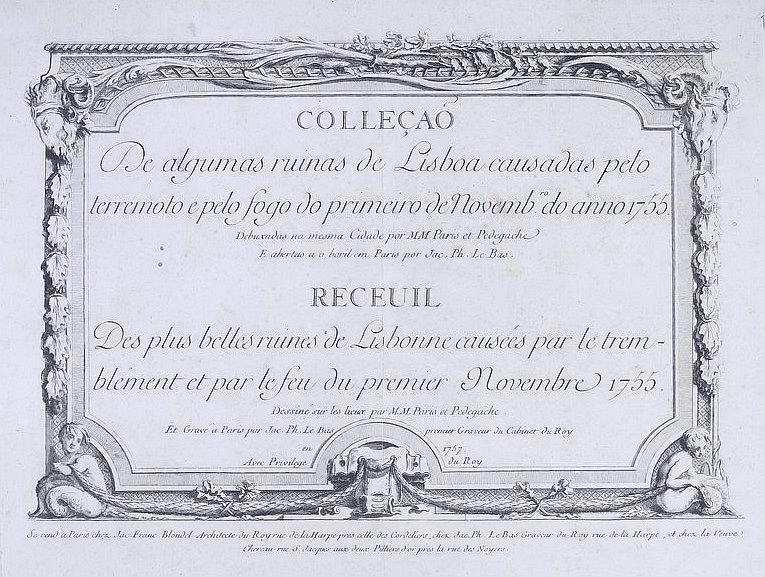 COLLEÇAÕ
De algumas ruinas de Lisboa causadas pelo
terremoto e pelo fogo do primeiro de Novemb.ro do anno 1755.
Debuxadas na mesma Cidade por MM. Paris et Pedegache
E abertas a o boril em Paris por Jac. Ph. Le Bas.
RECEUIL
Des plus belles ruines de Lisbonne causées par le trem-
blement et par le feu du premier Novembre 1755.
Dessiné sur les lieux par M.M. Paris et Pedegache
Et Gravé à Paris par Jac. Ph. Le Bas premier Graveur du Cabinet du Roy
en 1757
Avec Privilege du Roy
Se vend a Paris chez Jac. Franc. Blondel Architecte du Roy rue de la Harpe près celle des Cordeliers, chez Jac. Ph. Le Bas Graveur du Roy rue de la Harpe, et chez la Veuve
Chereau rue S. Jacques aux deux Pilliers d'or près la rue des Noyers.